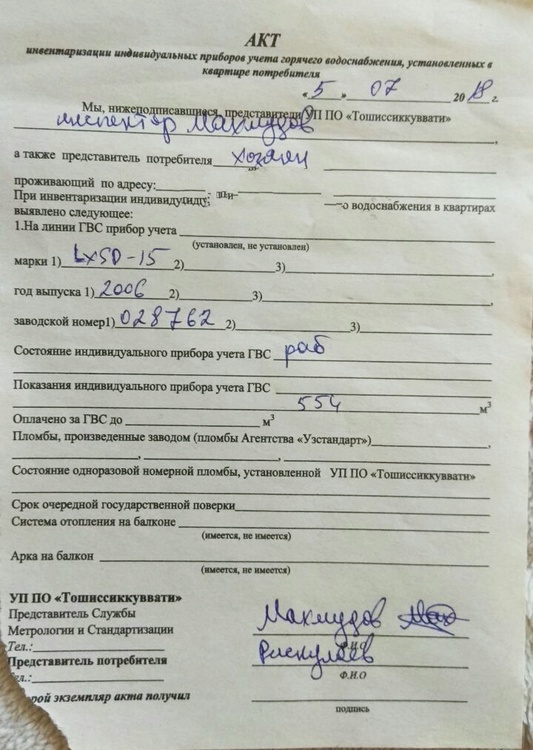 АКТ
инвентаризации индивидуальных приборов учета горячего водоснабжения, установленных в
квартире потребителя
« 5 » 07 2018 г.
Мы, нижеподписавшиеся, представители УП ПО «Тошиссиккуввати»
инспектор Махмудов
а также представитель потребителя хозяин
проживающий по адресу:
При инвентаризации водоснабжения в квартирах
выявлено следующее:
1.На линии ГВС прибор учета
(установлен, не установлен)
марки 1) LXSD-15 2) 3)
год выпуска 1) 2006 2) 3)
заводской номер1) 028762 2) 3)
Состояние индивидуального прибора учета ГВС раб
Показания индивидуального прибора учета ГВС
554 м³
Оплачено за ГВС до м³
Пломбы, произведенные заводом (пломбы Агентства «Узстандарт»)
Состояние одноразовой номерной пломбы, установленной УП ПО «Тошиссиккуввати»
Срок очередной государственной поверки
Система отопления на балконе
(имеется, не имеется)
Арка на балкон
(имеется, не имеется)
УП ПО «Тошиссиккуввати»
Представитель Службы
Метрологии и Стандартизации Махмудов
Тел.: Ф.И.О
Представитель потребителя Рискулов
ел.: Ф.И.О
рой экземпляр акта получил
подпись